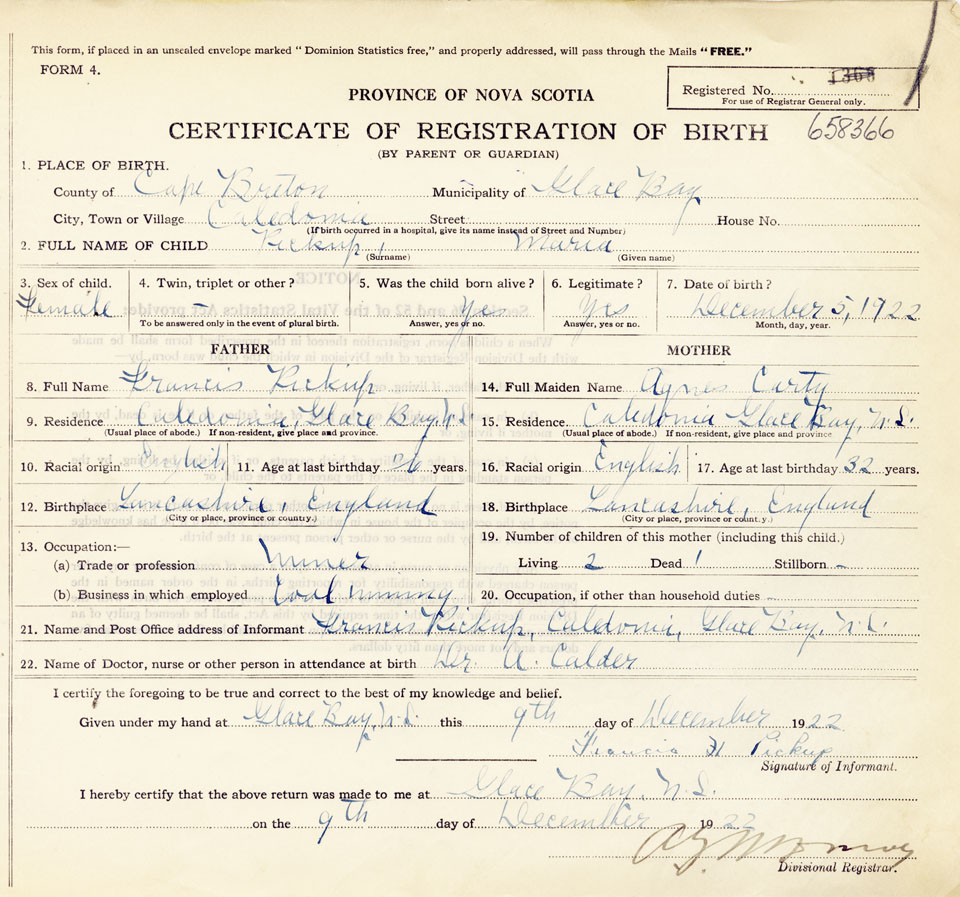 This form, if placed in an unsealed envelope marked "Dominion Statistics free," and properly addressed, will pass through the Mails "FREE."
FORM 4.
1368
Registered No.
For use of Registrar General only.
PROVINCE OF NOVA SCOTIA
CERTIFICATE OF REGISTRATION OF BIRTH 658366
(BY PARENT OR GUARDIAN)
1. PLACE OF BIRTH.
County of Cape Breton Municipality of Glace Bay
City, Town or Village Caledonia Street House No.
(If birth occurred in a hospital, give its name instead of Street and Number)
2. FULL NAME OF CHILD Pickup, Maria
(Surname) (Given name)
3. Sex of child. 4. Twin, triplet or other? 5. Was the child born alive? 6. Legitimate? 7. Date of birth?
Female - Yes Yes December 5, 1922
To be answered only in the event of plural birth. Answer, yes or no. Answer, yes or no. Month, day, year.
FATHER MOTHER
8. Full Name Francis Pickup 14. Full Maiden Name Agnes Carty
9. Residence Caledonia, Glace Bay, N.S. 15. Residence Caledonia Glace Bay, N.S.
(Usual place of abode.) If non-resident, give place and province. (Usual place of abode.) If non-resident, give place and province
10. Racial origin English 11. Age at last birthday 26 years. 16. Racial origin English 17. Age at last birthday 32 years.
12. Birthplace Lancashire, England 18. Birthplace Lancashire, England
(City or place, province or country.) (City or place, province or county.)
13. Occupation:— 19. Number of children of this mother (including this child.)
(a) Trade or profession Miner Living 2 Dead 1 Stillborn -
(b) Business in which employed Coal mining 20. Occupation, if other than household duties -
21. Name and Post Office address of Informant Francis Pickup, Caledonia, Glace Bay, N.S.
22. Name of Doctor, nurse or other person in attendance at birth Dr. A. Calder
I certify the foregoing to be true and correct to the best of my knowledge and belief.
Given under my hand at Glace Bay, N.S. this 9th day of December 1922
Francis H Pickup
Signature of Informant.
I hereby certify that the above return was made to me at Glace Bay, N.S.
on the 9th day of December 1922
Divisional Registrar.